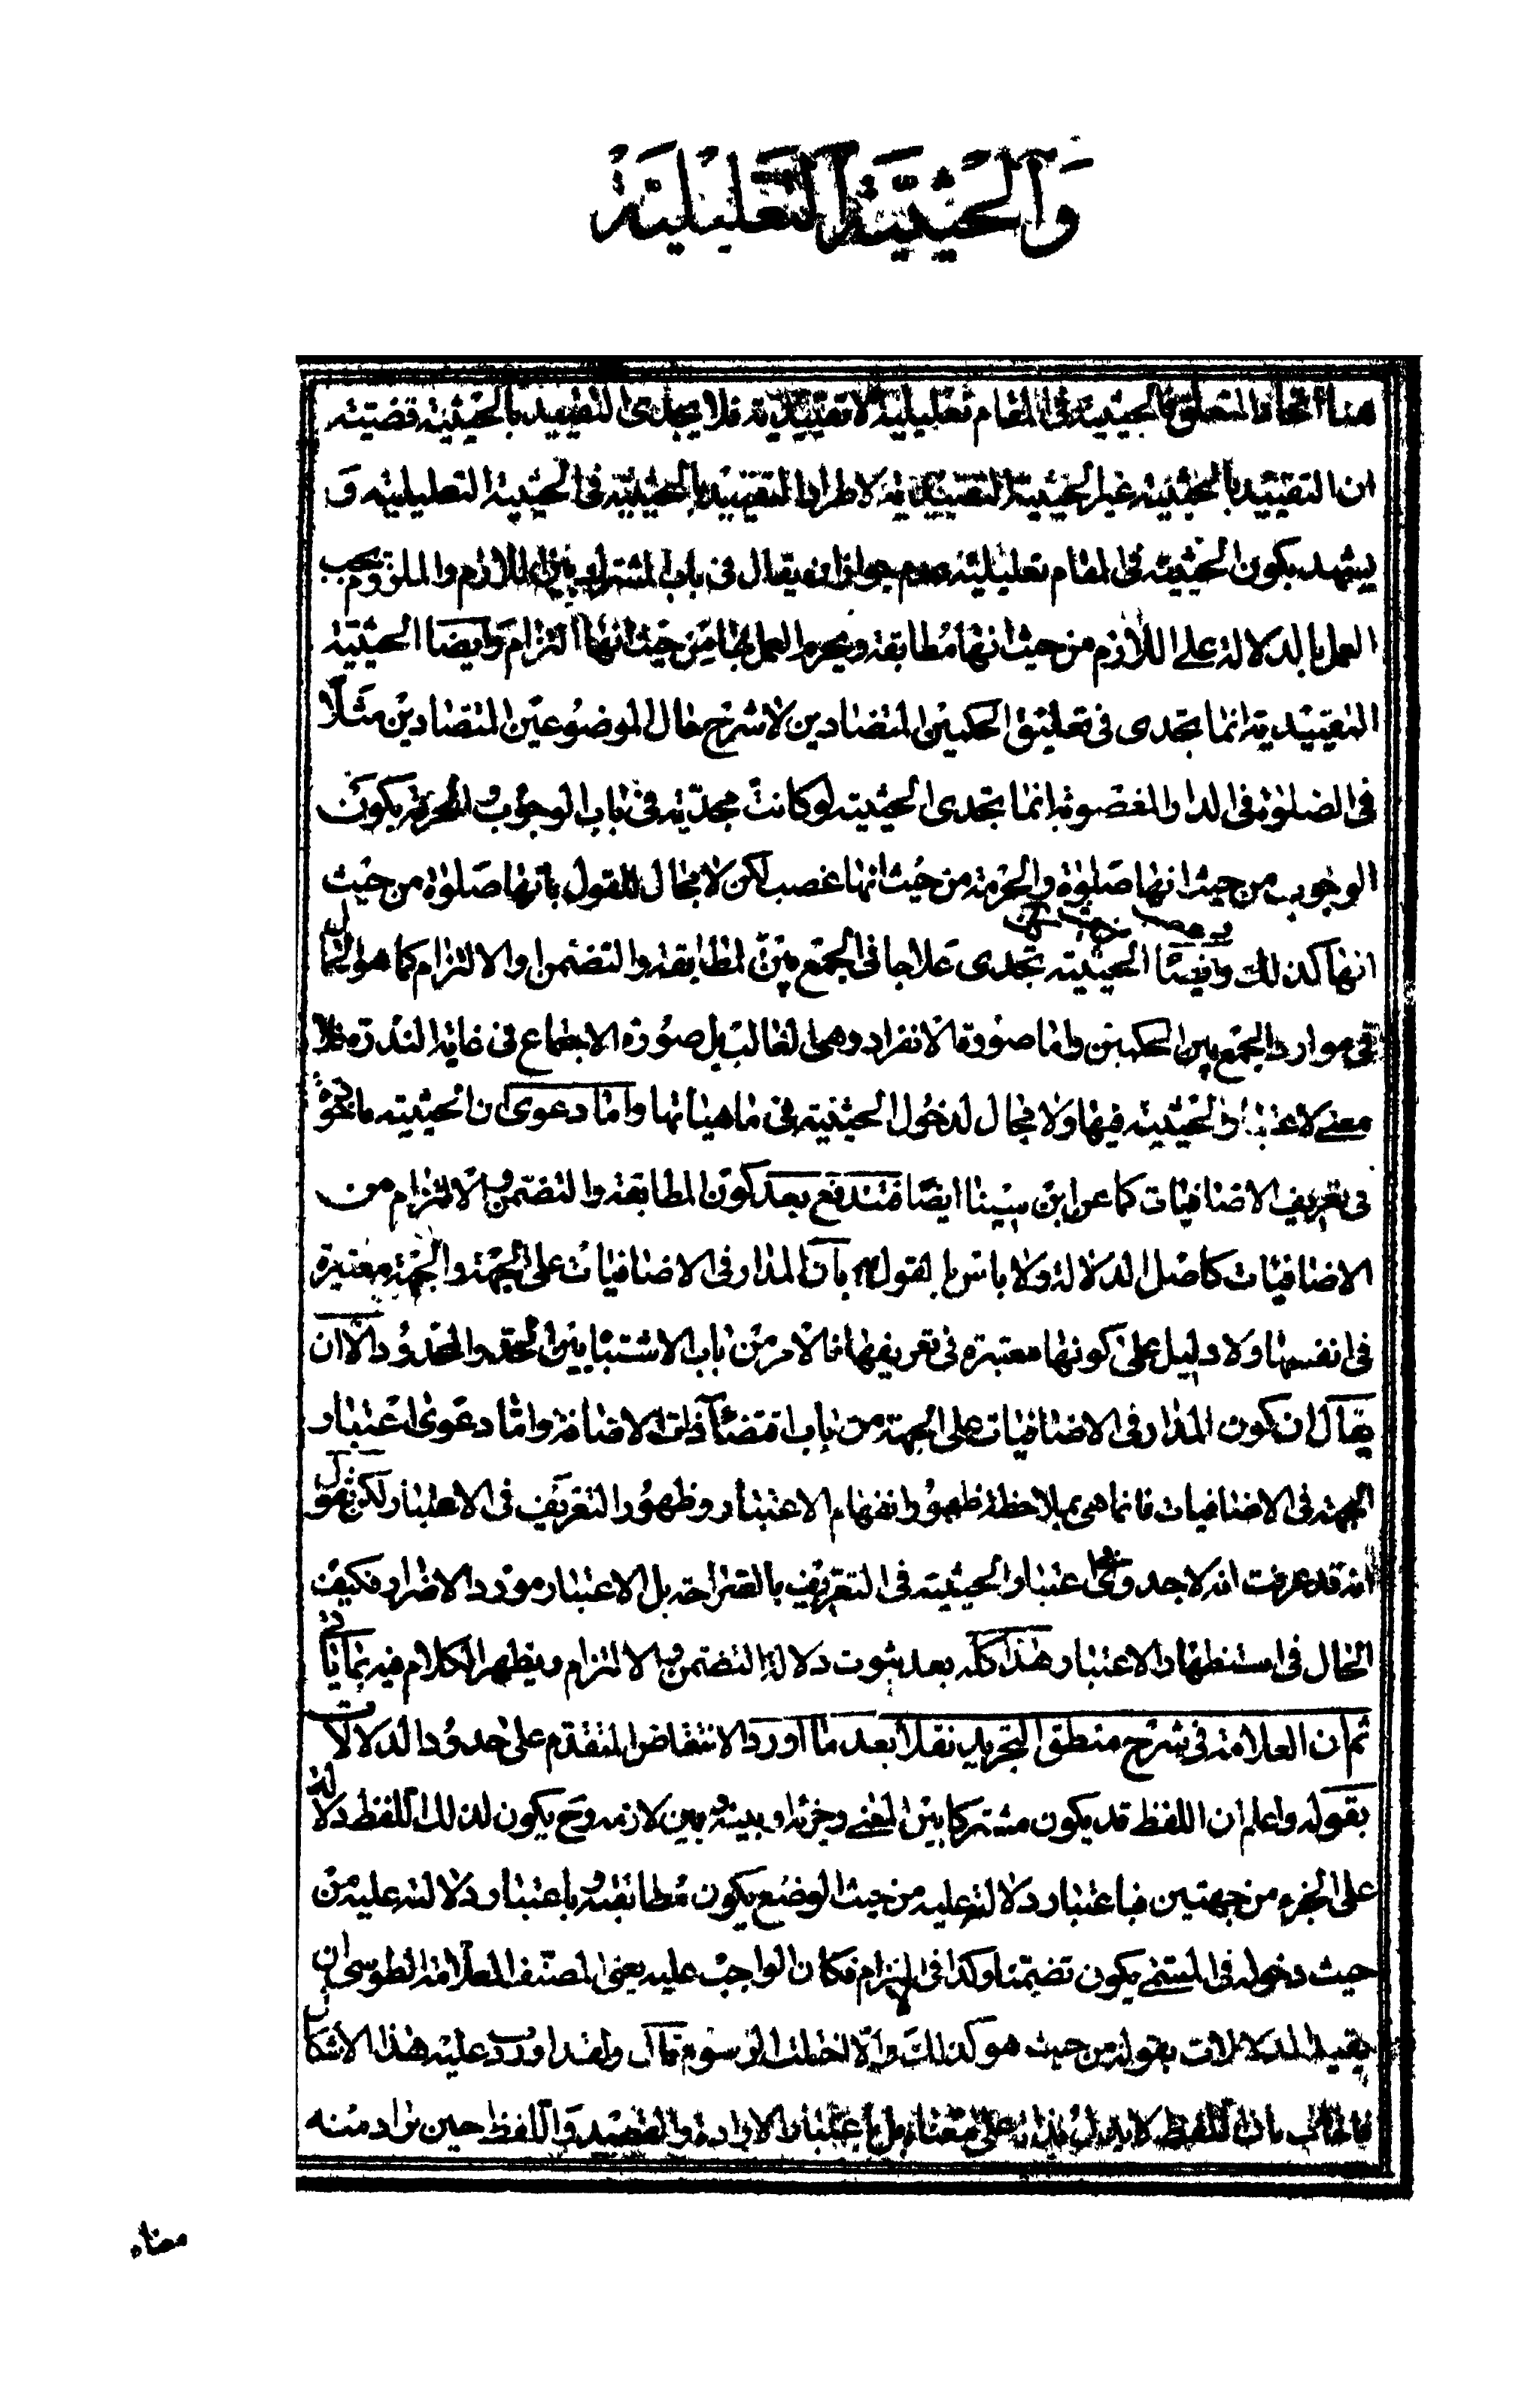 وَالحَيْثِيَّةُ التَّعْلِيْلِيَّةُ
هنا اتحاد المتعلق فالحيثية في المقام تعليلية لا تقييدية فلا يجدى التقييد بالحيثية قضيته
ان التقييد بالحيثية غير الحيثية التقييدية لاطراد التقييد بالحيثية في الحيثية التعليلية و
يشهد بكون الحيثية في المقام تعليلية عدم جواز ان يقال في باب المشترك بين اللازم والملزوم يجب
العمل بالدلالة على اللازم من حيث انها مطابقة ويحرم العمل بها من حيث انها التزام وايضا الحيثية
التقييدية انما تجدى في تعليق الحكمين المتضادين لا شرح حال الموضوعين المتضادين مثلا
في الصلوة في الدار المغصوبة انما تجدى الحيثية لو كانت مجدية في باب الوجوب والحرمة بكون
الوجوب من حيث انها صلوة والحرمة من حيث انها غصب لكن لا مجال للقول بانها صلوة من حيث
انها كذلك وايضا الحيثية تجدى علاجا في الجمع بين المطابقة والتضمن والالتزام كما هو الحال
في موارد الجمع بين الحكمين واما صورة الانفراد وهى الغالب بل صورة الاجتماع في غاية الندرة فلا
معنى لاعتبار الحيثية فيها ولا مجال لدخول الحيثية في ماهياتها واما دعوى ان الحيثية ماخوذة
في تعريف الاضافيات كما عن ابن سينا ايضا فتندفع بعد كون المطابقة والتضمن والالتزام من
الاضافيات كاصل الدلالة ولا باس بالقول به بان المدار في الاضافيات على الجهة والجهة معتبرة
في انفسها ولا دليل على كونها معتبرة في تعريفها فالامر من باب الاشتباه بين الحد والمحدود الا ان
يقال ان كون المدار في الاضافيات على الجهة من باب اقتضاء ذات الاضافة واما دعوى اعتبار
الجهة في الاضافيات فانما هى بملاحظة ظهور انفهام الاعتبار وظهور التعريف في الاعتبار لكن نقول
انه قد عرفت انه لا جدوى في اعتبار الحيثية في التعريف بالصراحة بل الاعتبار مورد الاضرار فكيف
الحال في استظهار الاعتبار هذا كله بعد ثبوت دلالة التضمن والالتزام ويظهر الكلام فيه بما ياتى
ثم ان العلامة في شرح منطق التجريد نقلا بعد ما اورد الانتقاض المتقدم على حدود الدلالات
بقوله واعلم ان اللفظ قد يكون مشتركا بين المعنى وجزئه او بينه وبين لازمه وح يكون لذلك اللفظ دلالة
على الجزء من جهتين فباعتبار دلالته عليه من حيث الوضع يكون مطابقة وباعتبار دلالته عليه من
حيث دخوله في المسمى يكون تضمنا وكذا في الالتزام فكان الواجب عليه يعنى المصنف العلامة الطوسى ان
يقيد الدلالات بقوله من حيث هو كذلك والا اختلت الرسوم قال ولقد اوردت عليه هذا الاشكال
فاجاب بان اللفظ لا يدل بذاته على معناه بل باعتبار الارادة والقصد واللفظ حين يراد منه
معناه